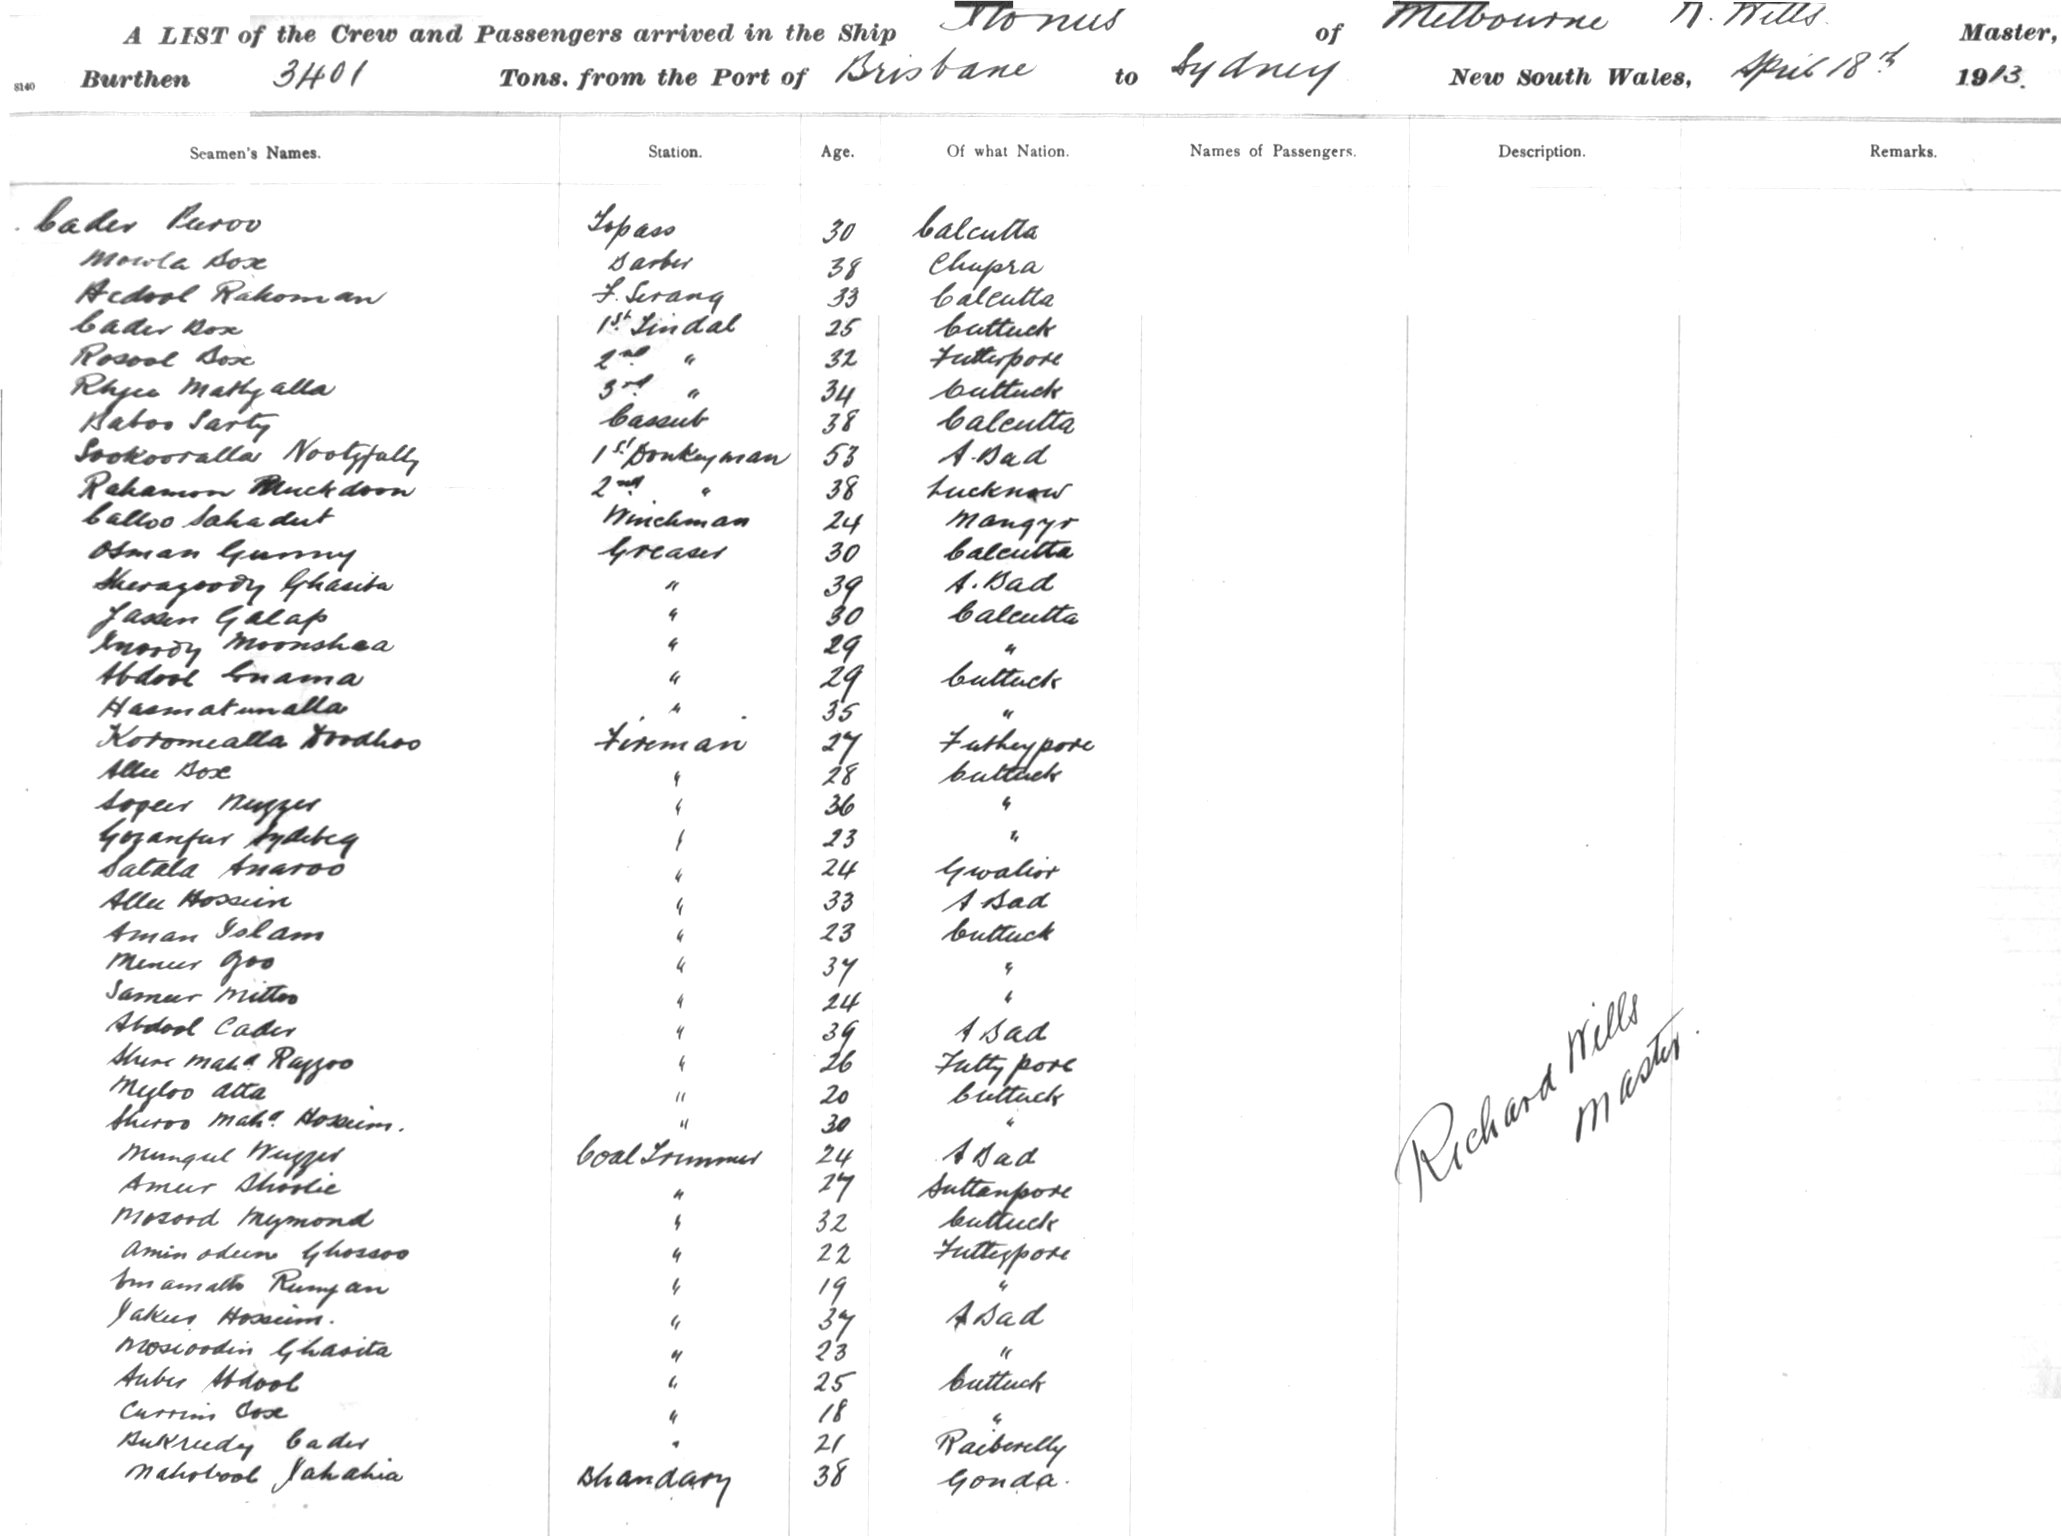 A LIST of the Crew and Passengers arrived in the Ship Itonus of Melbourne R. Wills Master,
8140 Burthen 3401 Tons. from the Port of Brisbane to Sydney New South Wales, April 18th 1913.
Seamen's Names. Station. Age. Of what Nation. Names of Passengers. Description. Remarks.
Cader Peeroo Topass 30 Calcutta
Mowla Box Barber 38 Chupra
Acdool Rahoman F. Serang 33 Calcutta
Cader Box 1st Tindal 25 Cuttuck
Rosool Box 2nd " 32 Futterpore
Matlyalla 3rd " 34 Cuttuck
Baboo Sarty Cassub 38 Calcutta
Sookooralla Nootyfully 1st Donkeyman 53 A. Bad
Rahamon Muckdoon 2nd " 38 Lucknow
Calloo Sahadut Winchman 24 Mangyr
Osman Gunny Greaser 30 Calcutta
Sheragoody Ghasita " 39 A. Bad
Jasen Golap " 30 Calcutta
Moonshea " 29 "
Abdool Enama " 29 Cuttuck
Hasmatunalla " 35 "
Koromealla Doodhoo Fireman 27 Futheypore
Allee Box " 28 Cuttuck
" 36 "
Gozanfur Sydebeg " 23 "
Satala Anaroo " 24 Gwalior
Allee Hossein " 33 A Bad
Aman Islam " 23 Cuttuck
Meneer Goo " 37 "
Sameer Mittoo " 24 "
Abdool Cader " 39 A Bad
Shere Mahd Razzoo " 26 Futty pore
Atta " 20 Cuttuck
Sheroo Mahd Hossein. " 30 "
Mungul Wuzzer Coal Trimmer 24 A Bad
Ameer " 27 Sultanpore
Mosood Mymond " 32 Cuttuck
Amin odeen Ghossoo " 22 Futteypore
" 19 "
Yakub Hossein. " 37 A Bad
Mosioodin Ghasita " 23 "
Abdool " 25 Cuttuck
Currim Box " 18 "
Cader " 21 Raiberelly
Mahobool Jahahia Bhandary 38 Gonda.
Richard Wills
Master.